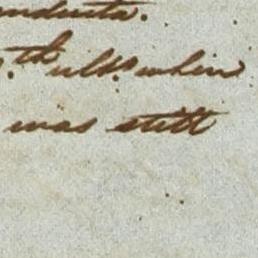 conducta.
th ulto. when
was still